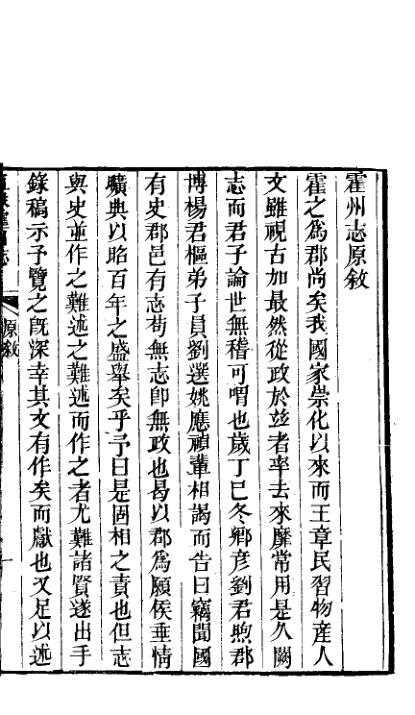 霍州志原敘
霍之為郡尚矣我國家崇化以來而王章民習物産人
文雖視古加最然從政於茲者率去來靡常用是久闕
志而君子論世無稽可喟也歲丁巳冬鄉彥劉君煦郡
博楊君樞弟子員劉選姚應禎輩相謁而告曰竊聞國
有史郡邑有志苟無志卽無政也曷以郡為願侯垂情
曠典以昭百年之盛舉矣乎予曰是固相之責也但志
與史並作之難述之難述而作之者尤難諸賢遂出手
錄稿示予覽之旣深幸其文有作矣而獻也又足以述
原敘